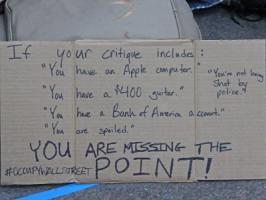 If your critique includes:
"You have an Apple computer."
"You have a $400 guitar."
"You're not being shot by police."
"You have a Bank of America account."
"You are spoiled."
YOU ARE MISSING THE
#OCCUPYWALLSTREET POINT!